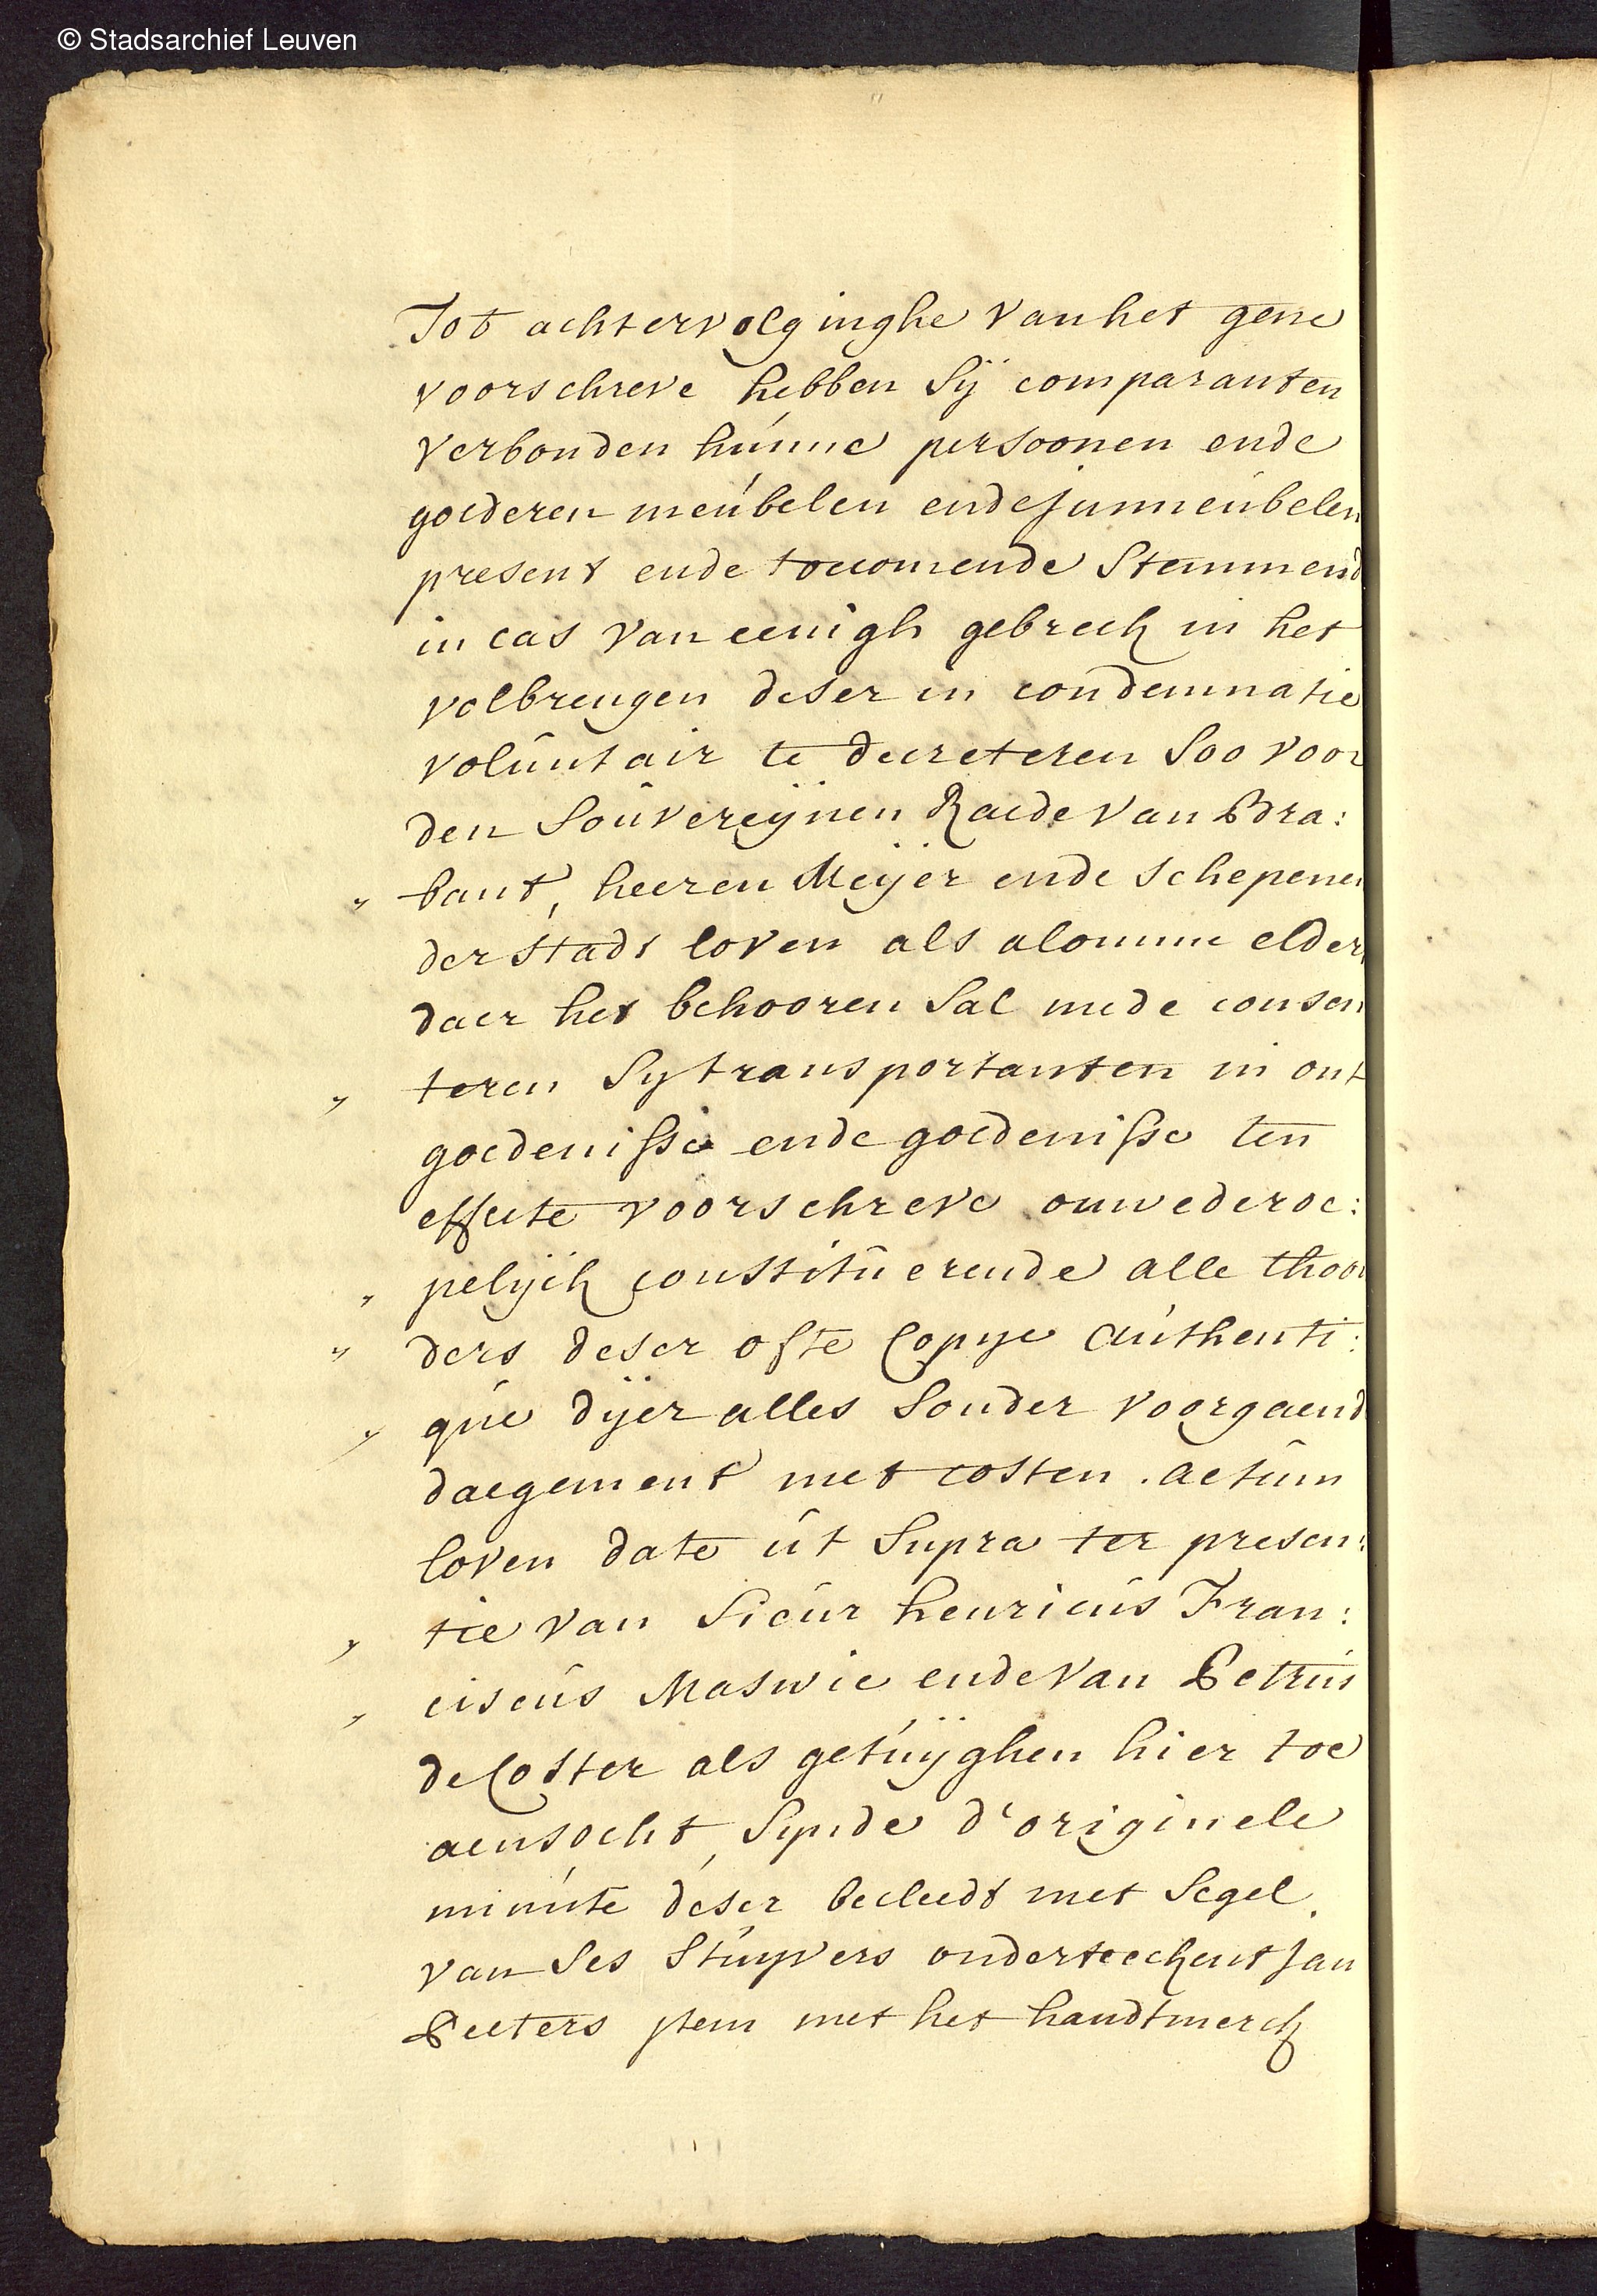 © Stadsarchief Leuven
Tot achtervolginghe van het gene
voorschreve hebben sÿ comparanten
verbonden hunne persoonen ende
goederen meubelen ende jmmeubelen
present ende toecomende Stemmend
in cas van eenigh gebreck in het
volbrengen deser in condemnatie
voluntair te decreteren soo voor
den souvereynen Raede van Bra:
bant, heeren Meÿer ende schepenen
der stadt loven als alomme elders
daer het behooren sal mede consen
teren sy transportanten in ont
goedenisse ende goedenisse ten
effecte voorschreve onwederoe:
pelÿck constituerende alle thoon
ders deser ofte Copye authenti:
que dÿer alles sonder voorgaend
daegement met costen. actum
loven date ut supra ter presen:
tie van Sieur henricus Fran:
ciscus Maswie ende van Petrus
de Coster als getuÿghen hier toe
aensocht, synde d'originele
minute deser becleedt met segel
van ses stuyvers onderteeckent Jan
Peeters jtem met het handtmerck